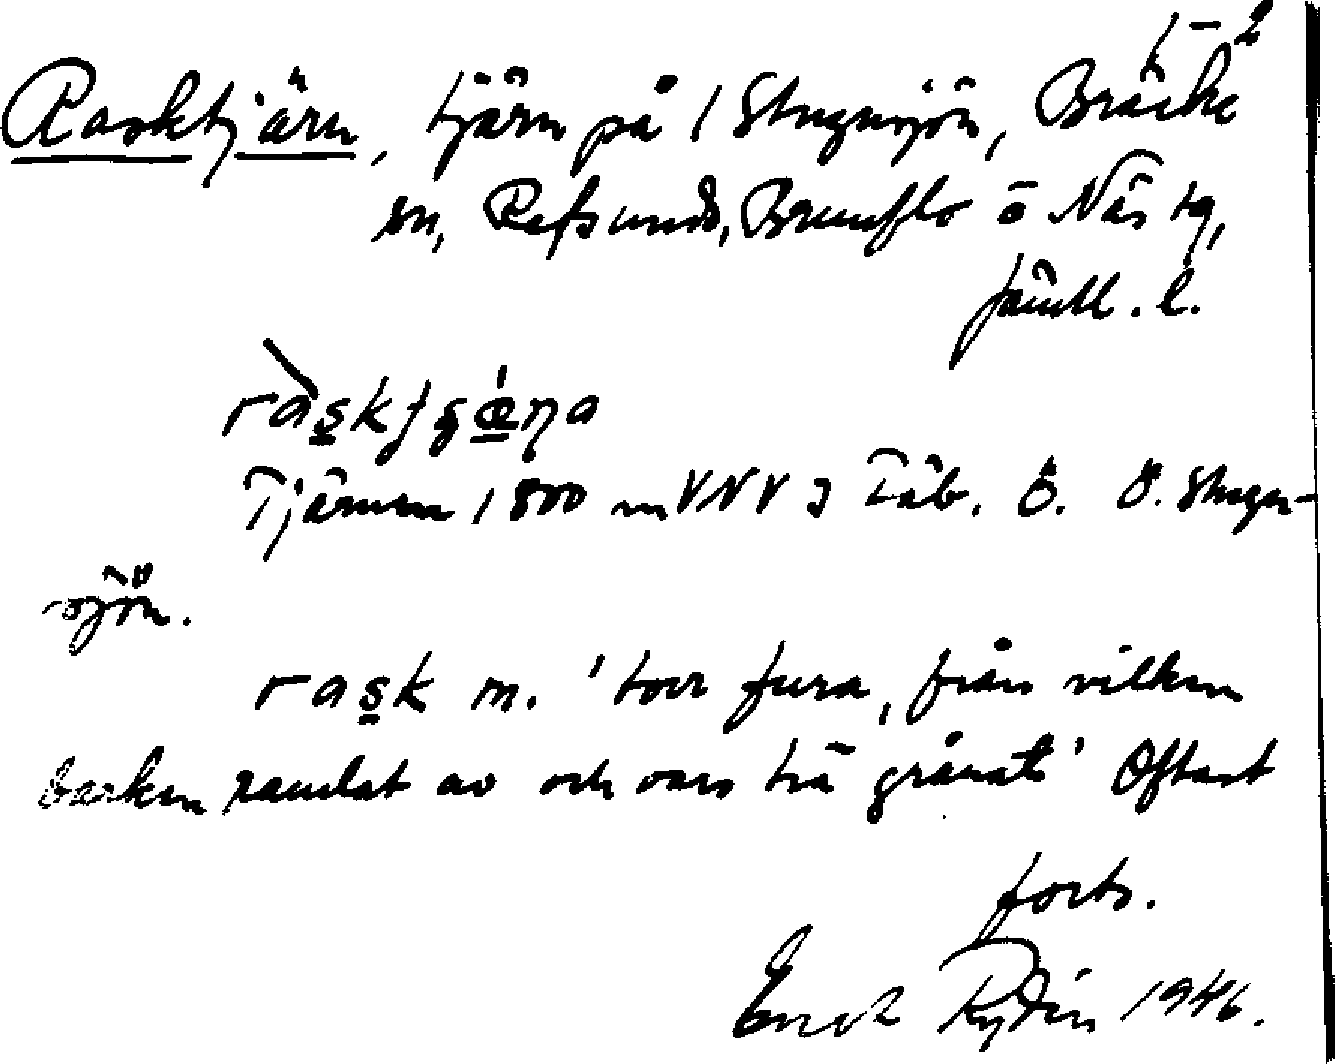 1–2
Rasktjärn, tjärn på 1 Stugusjön, Bräcke
sn, Refsunds, Brunflo o Näs tg,
Jämtl. l.
Tjärnen 1800 m VNV I Fäb. Ö. Ö. Stugu-
sjön.
rask m. 'torr fura, från vilken
barken ramlat av och vars trä grånat' Oftast
forts.
Erick Rydin 1946.